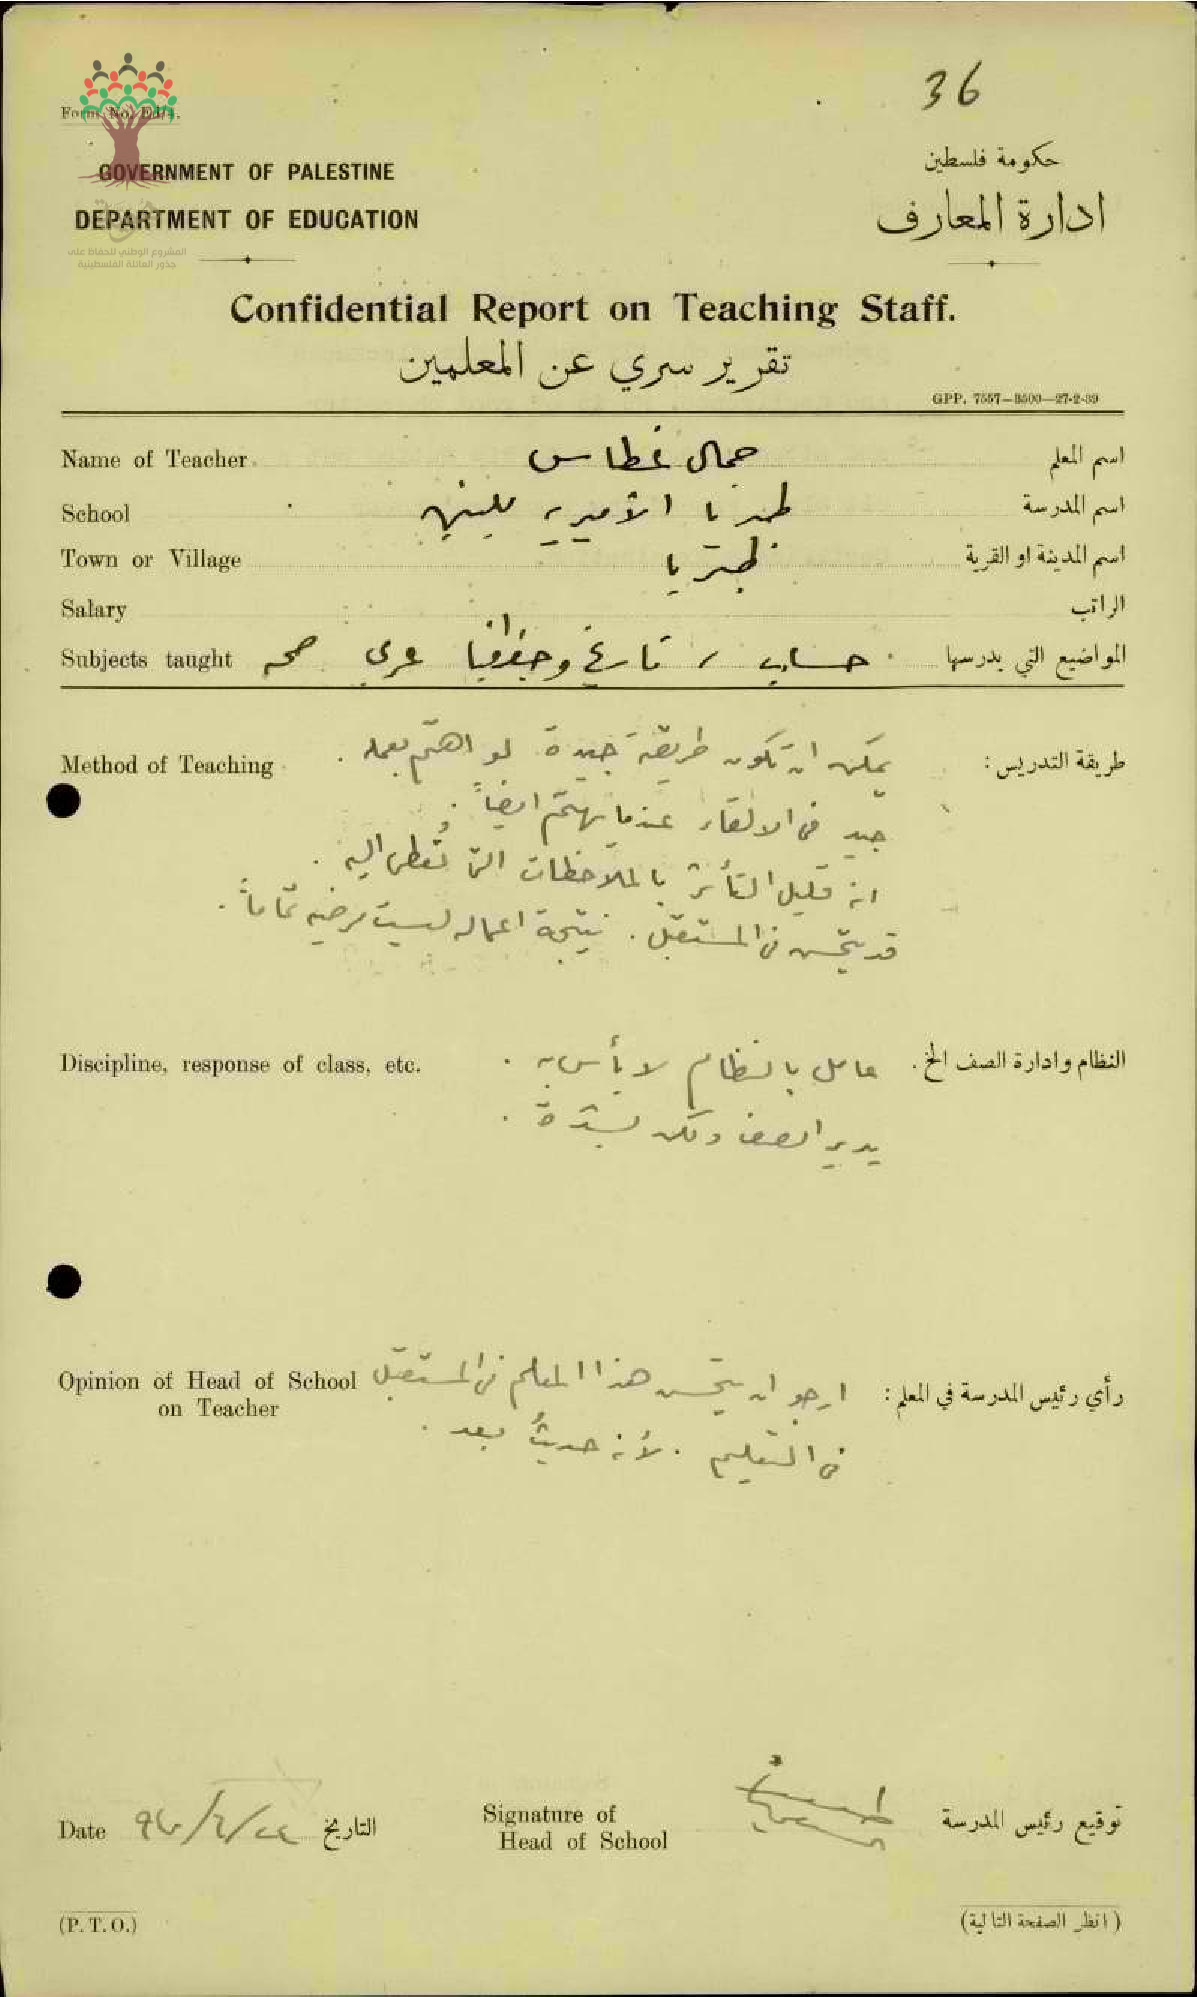 36
Form No. Ed/4.
GOVERNMENT OF PALESTINE
حكومة فلسطين
DEPARTMENT OF EDUCATION
ادارة المعارف
المشروع الوطني للحفاظ على
جذور العائلة الفلسطينية
Confidential Report on Teaching Staff.
تقرير سري عن المعلمين
GPP. 7557—3500—27-2-39
Name of Teacher جمال غطاس اسم المعلم
School طبريا الاميرية للبنين اسم المدرسة
Town or Village طبريا اسم المدينة او القرية
Salary الراتب
Subjects taught حساب ، تاريخ وجغرافيا عربي صحه المواضيع التي يدرسها
Method of Teaching طريقة التدريس :
يمكن ان تكون طريقته جيدة لو اهتم بعمله .
جيد في الالقاء عندما يهتم ايضاً .
انه قليل التأثر بالملاحظات التي تُعطى اليه .
قد يتحسن في المستقبل . نتيجة اعماله ليست مرضيه تماماً .
Discipline, response of class, etc. النظام وادارة الصف الخ .
عامل بالنظام لا بأس به .
يدير الصف ولكن بشدة .
Opinion of Head of School
on Teacher
رأي رئيس المدرسة في المعلم :
ارجو ان يتحسن هذا المعلم في المستقبل
في التعليم . لأنه حديثٌ بعد .
Date التاريخ
Signature of
Head of School
توقيع رئيس المدرسة
(P. T. O.)
(انظر الصفحة التالية)